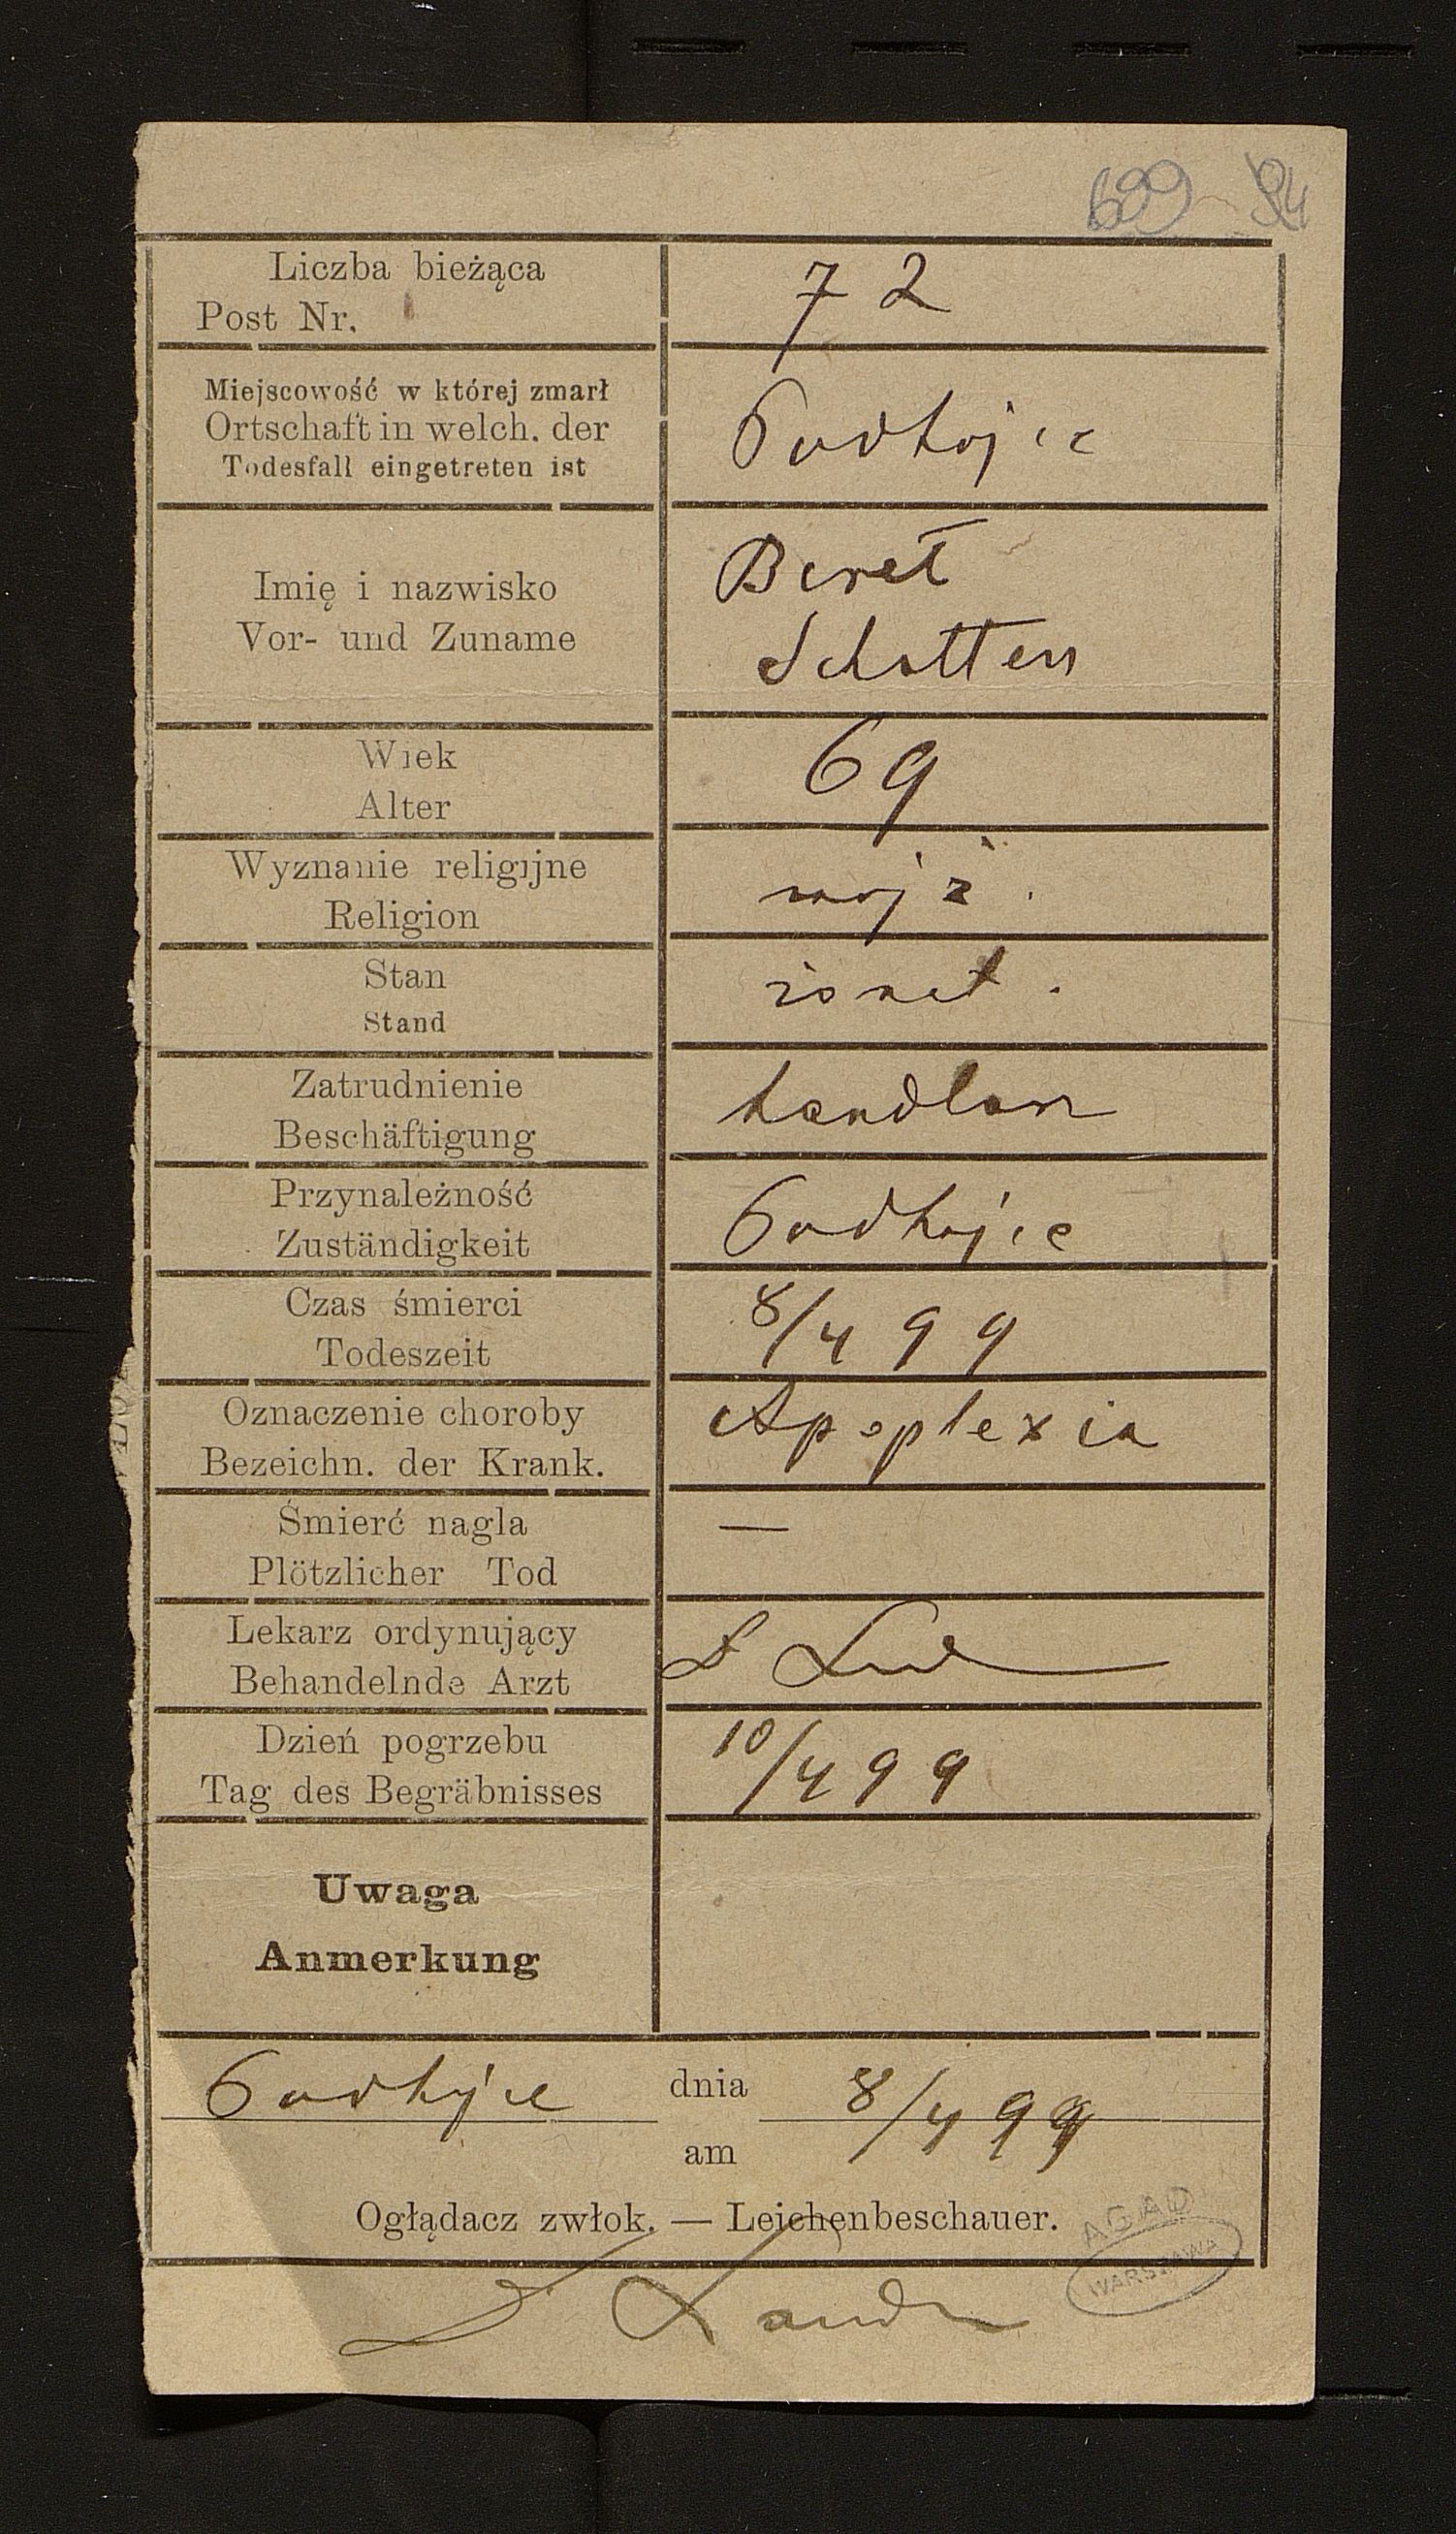 699 94
Liczba bieżąca
Post Nr.
72
Miejscowość w której zmarł
Ortschaft in welch. der
Todesfall eingetreten ist
Podhajce
Imię i nazwisko
Vor- und Zuname
Berel
Schotten
Wiek
Alter
69
Wyznanie religijne
Religion
mojż.
Stan
Stand
żonat.
Zatrudnienie
Beschäftigung
handlarz
Przynależność
Zuständigkeit
Podhajce
Czas śmierci
Todeszeit
8/4 99
Oznaczenie choroby
Bezeichn. der Krank.
Apoplexia
Śmierć nagla
Plötzlicher Tod
—
Lekarz ordynujący
Behandelnde Arzt
Dzień pogrzebu
Tag des Begräbnisses
10/4 99
Uwaga
Anmerkung
Podhajce dnia 8/4 99
am
Oglądacz zwłok. — Leichenbeschauer.
AGAD
WARSZAWA